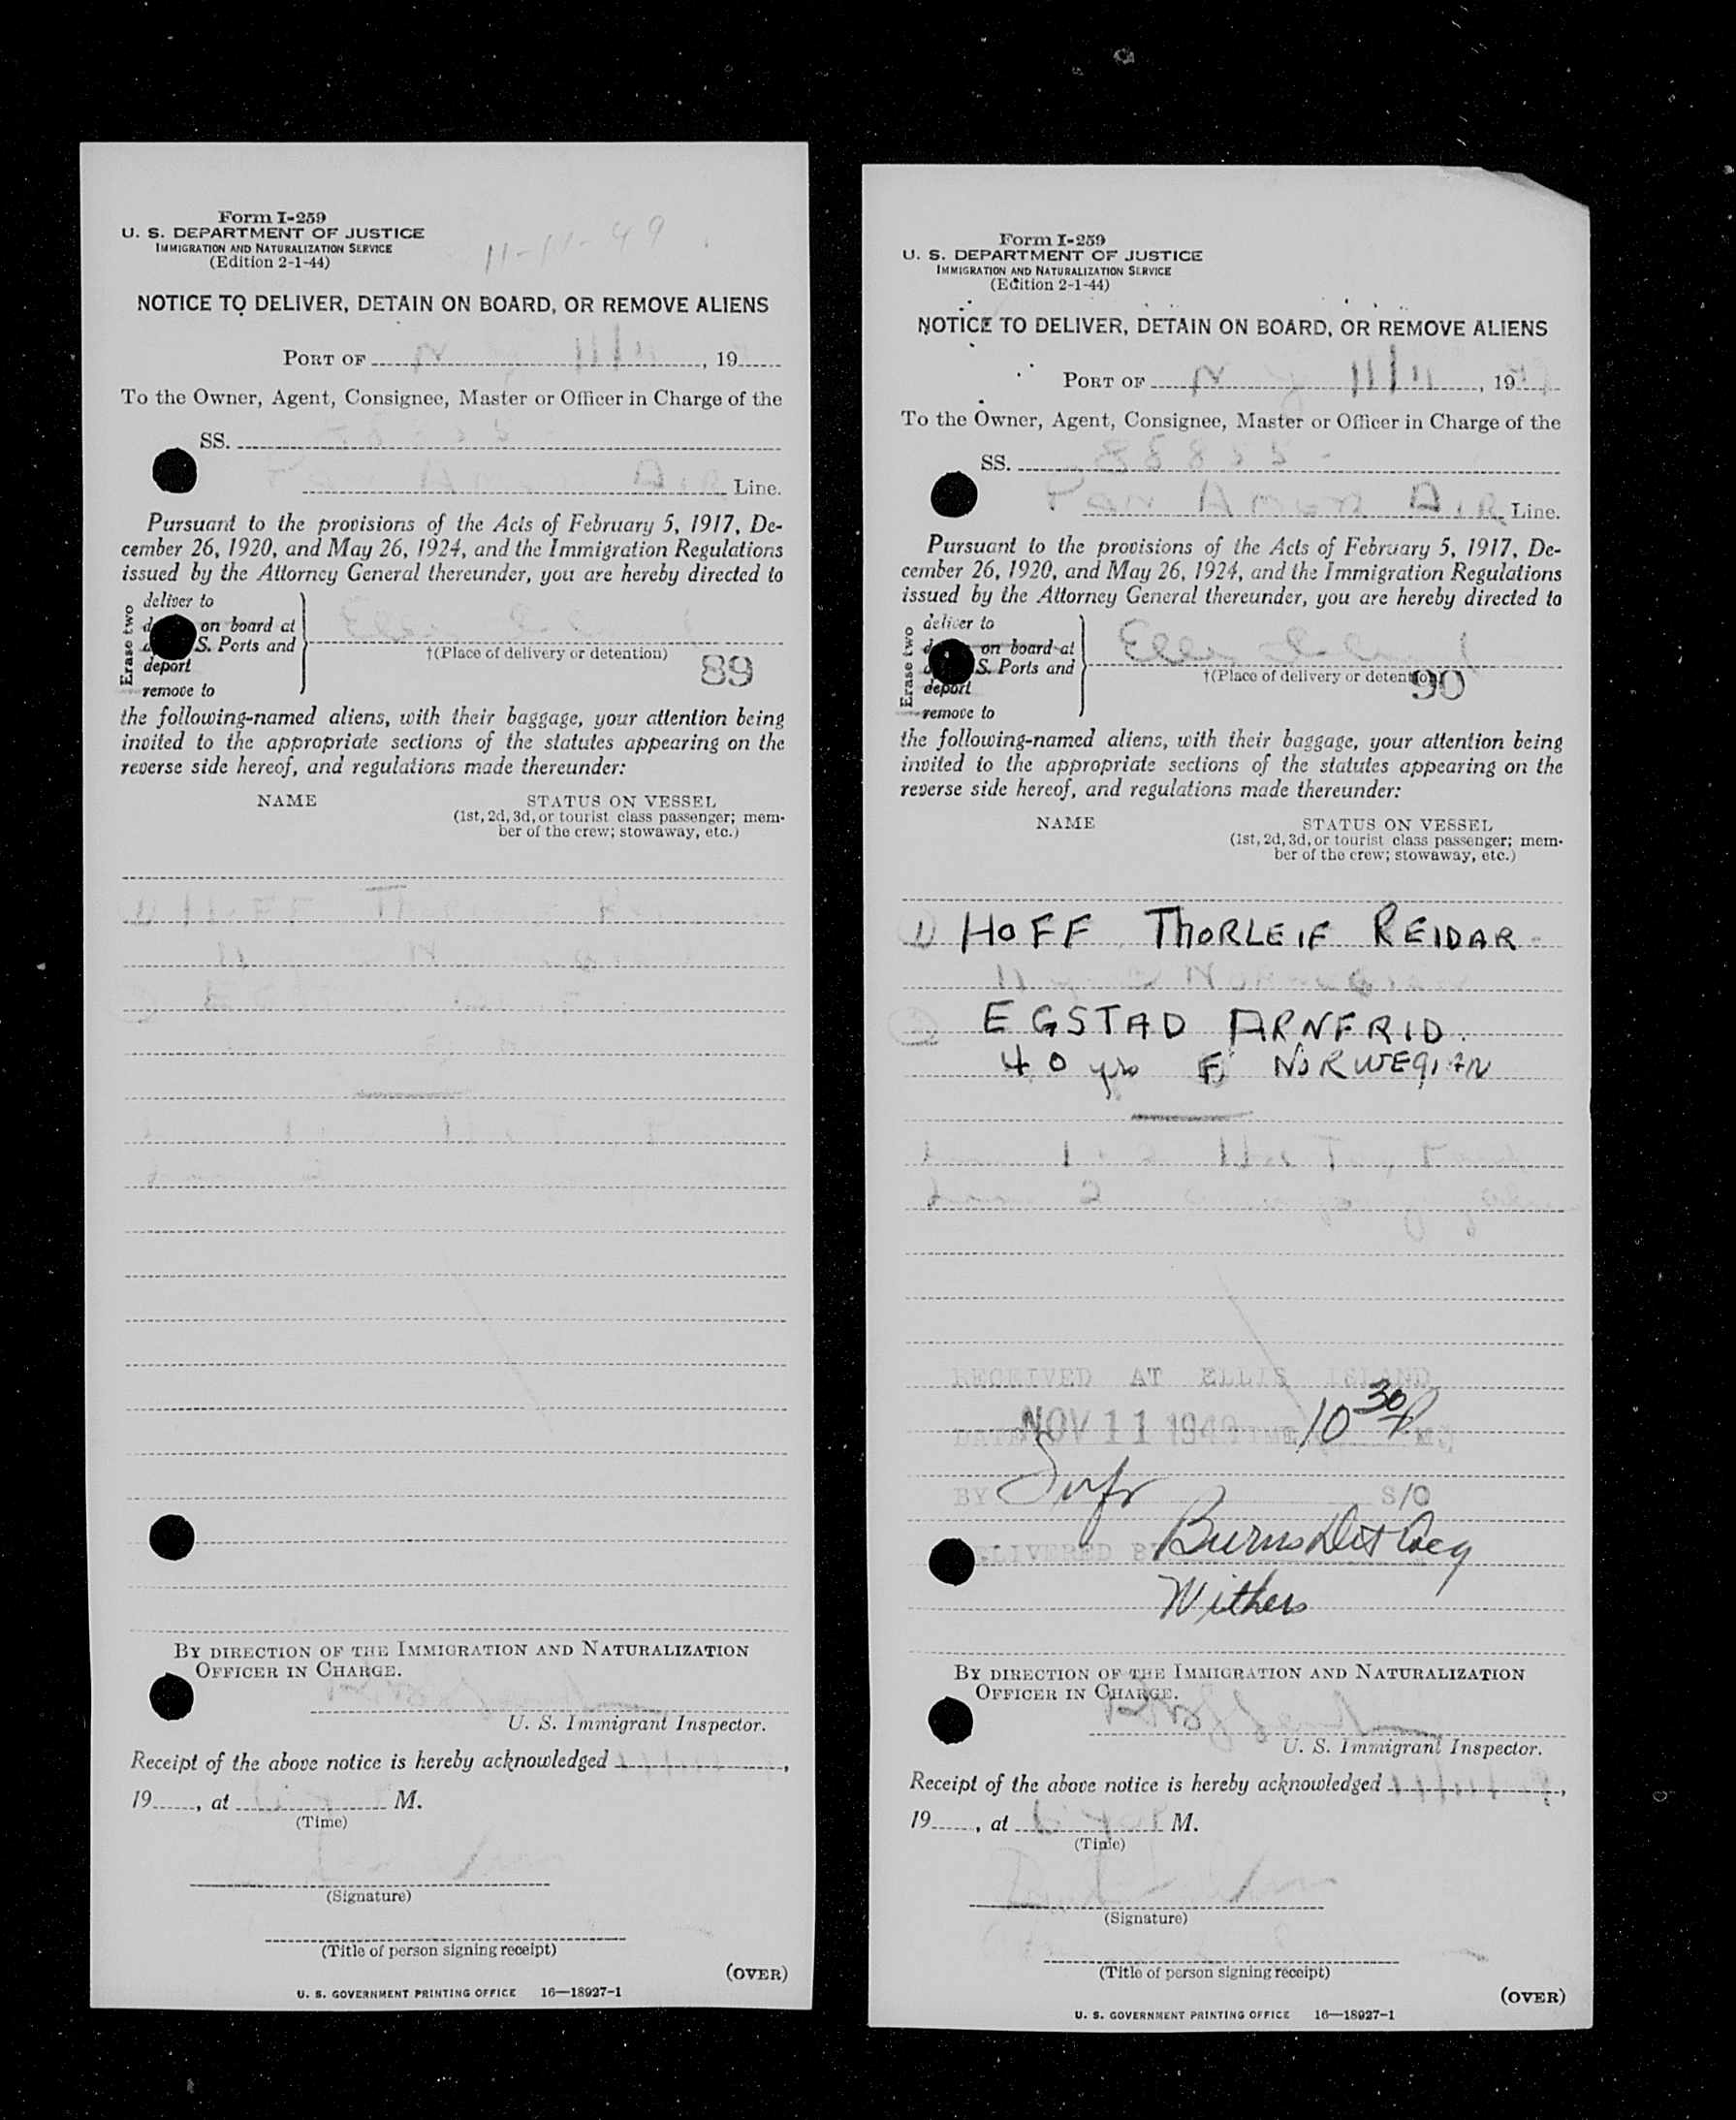 Form I-259
U. S. DEPARTMENT OF JUSTICE
IMMIGRATION AND NATURALIZATION SERVICE
(Edition 2-1-44)
11-11-49
NOTICE TO DELIVER, DETAIN ON BOARD, OR REMOVE ALIENS
PORT OF N 11/11, 19
To the Owner, Agent, Consignee, Master or Officer in Charge of the
SS.
Line.
Pursuant to the provisions of the Acts of February 5, 1917, De-
cember 26, 1920, and May 26, 1924, and the Immigration Regulations
issued by the Attorney General thereunder, you are hereby directed to
Erase two
deliver to
on board at
S. Ports and
deport
remove to
†(Place of delivery or detention)
89
the following-named aliens, with their baggage, your attention being
invited to the appropriate sections of the statutes appearing on the
reverse side hereof, and regulations made thereunder:
NAME STATUS ON VESSEL
(1st, 2d, 3d, or tourist class passenger; mem-
ber of the crew; stowaway, etc.)
BY DIRECTION OF THE IMMIGRATION AND NATURALIZATION
OFFICER IN CHARGE.
U. S. Immigrant Inspector.
Receipt of the above notice is hereby acknowledged
19, at M.
(Time)
(Signature)
(Title of person signing receipt)
(OVER)
U. S. GOVERNMENT PRINTING OFFICE 16—18927-1
Form I-259
U. S. DEPARTMENT OF JUSTICE
IMMIGRATION AND NATURALIZATION SERVICE
(Edition 2-1-44)
NOTICE TO DELIVER, DETAIN ON BOARD, OR REMOVE ALIENS
PORT OF N Y 11/11, 19
To the Owner, Agent, Consignee, Master or Officer in Charge of the
SS.
Pan Amer AIR Line.
Pursuant to the provisions of the Acts of February 5, 1917, De-
cember 26, 1920, and May 26, 1924, and the Immigration Regulations
issued by the Attorney General thereunder, you are hereby directed to
Erase two
deliver to
on board at
S. Ports and
deport
remove to
Ellis Island
†(Place of delivery or detention)
90
the following-named aliens, with their baggage, your attention being
invited to the appropriate sections of the statutes appearing on the
reverse side hereof, and regulations made thereunder:
NAME STATUS ON VESSEL
(1st, 2d, 3d, or tourist class passenger; mem-
ber of the crew; stowaway, etc.)
1) HOFF THORLEIF REIDAR
EGSTAD ARNFRID.
40 yrs F NORWEGIAN
RECEIVED AT ELLIS ISLAND
DATE NOV 11 1949 TIME 10 30 P M.
BY S/O
DELIVERED BY Burns Det Agy
Withers
BY DIRECTION OF THE IMMIGRATION AND NATURALIZATION
OFFICER IN CHARGE.
U. S. Immigrant Inspector.
Receipt of the above notice is hereby acknowledged
19, at M.
(Time)
(Signature)
(Title of person signing receipt)
(OVER)
U. S. GOVERNMENT PRINTING OFFICE 16—18927-1